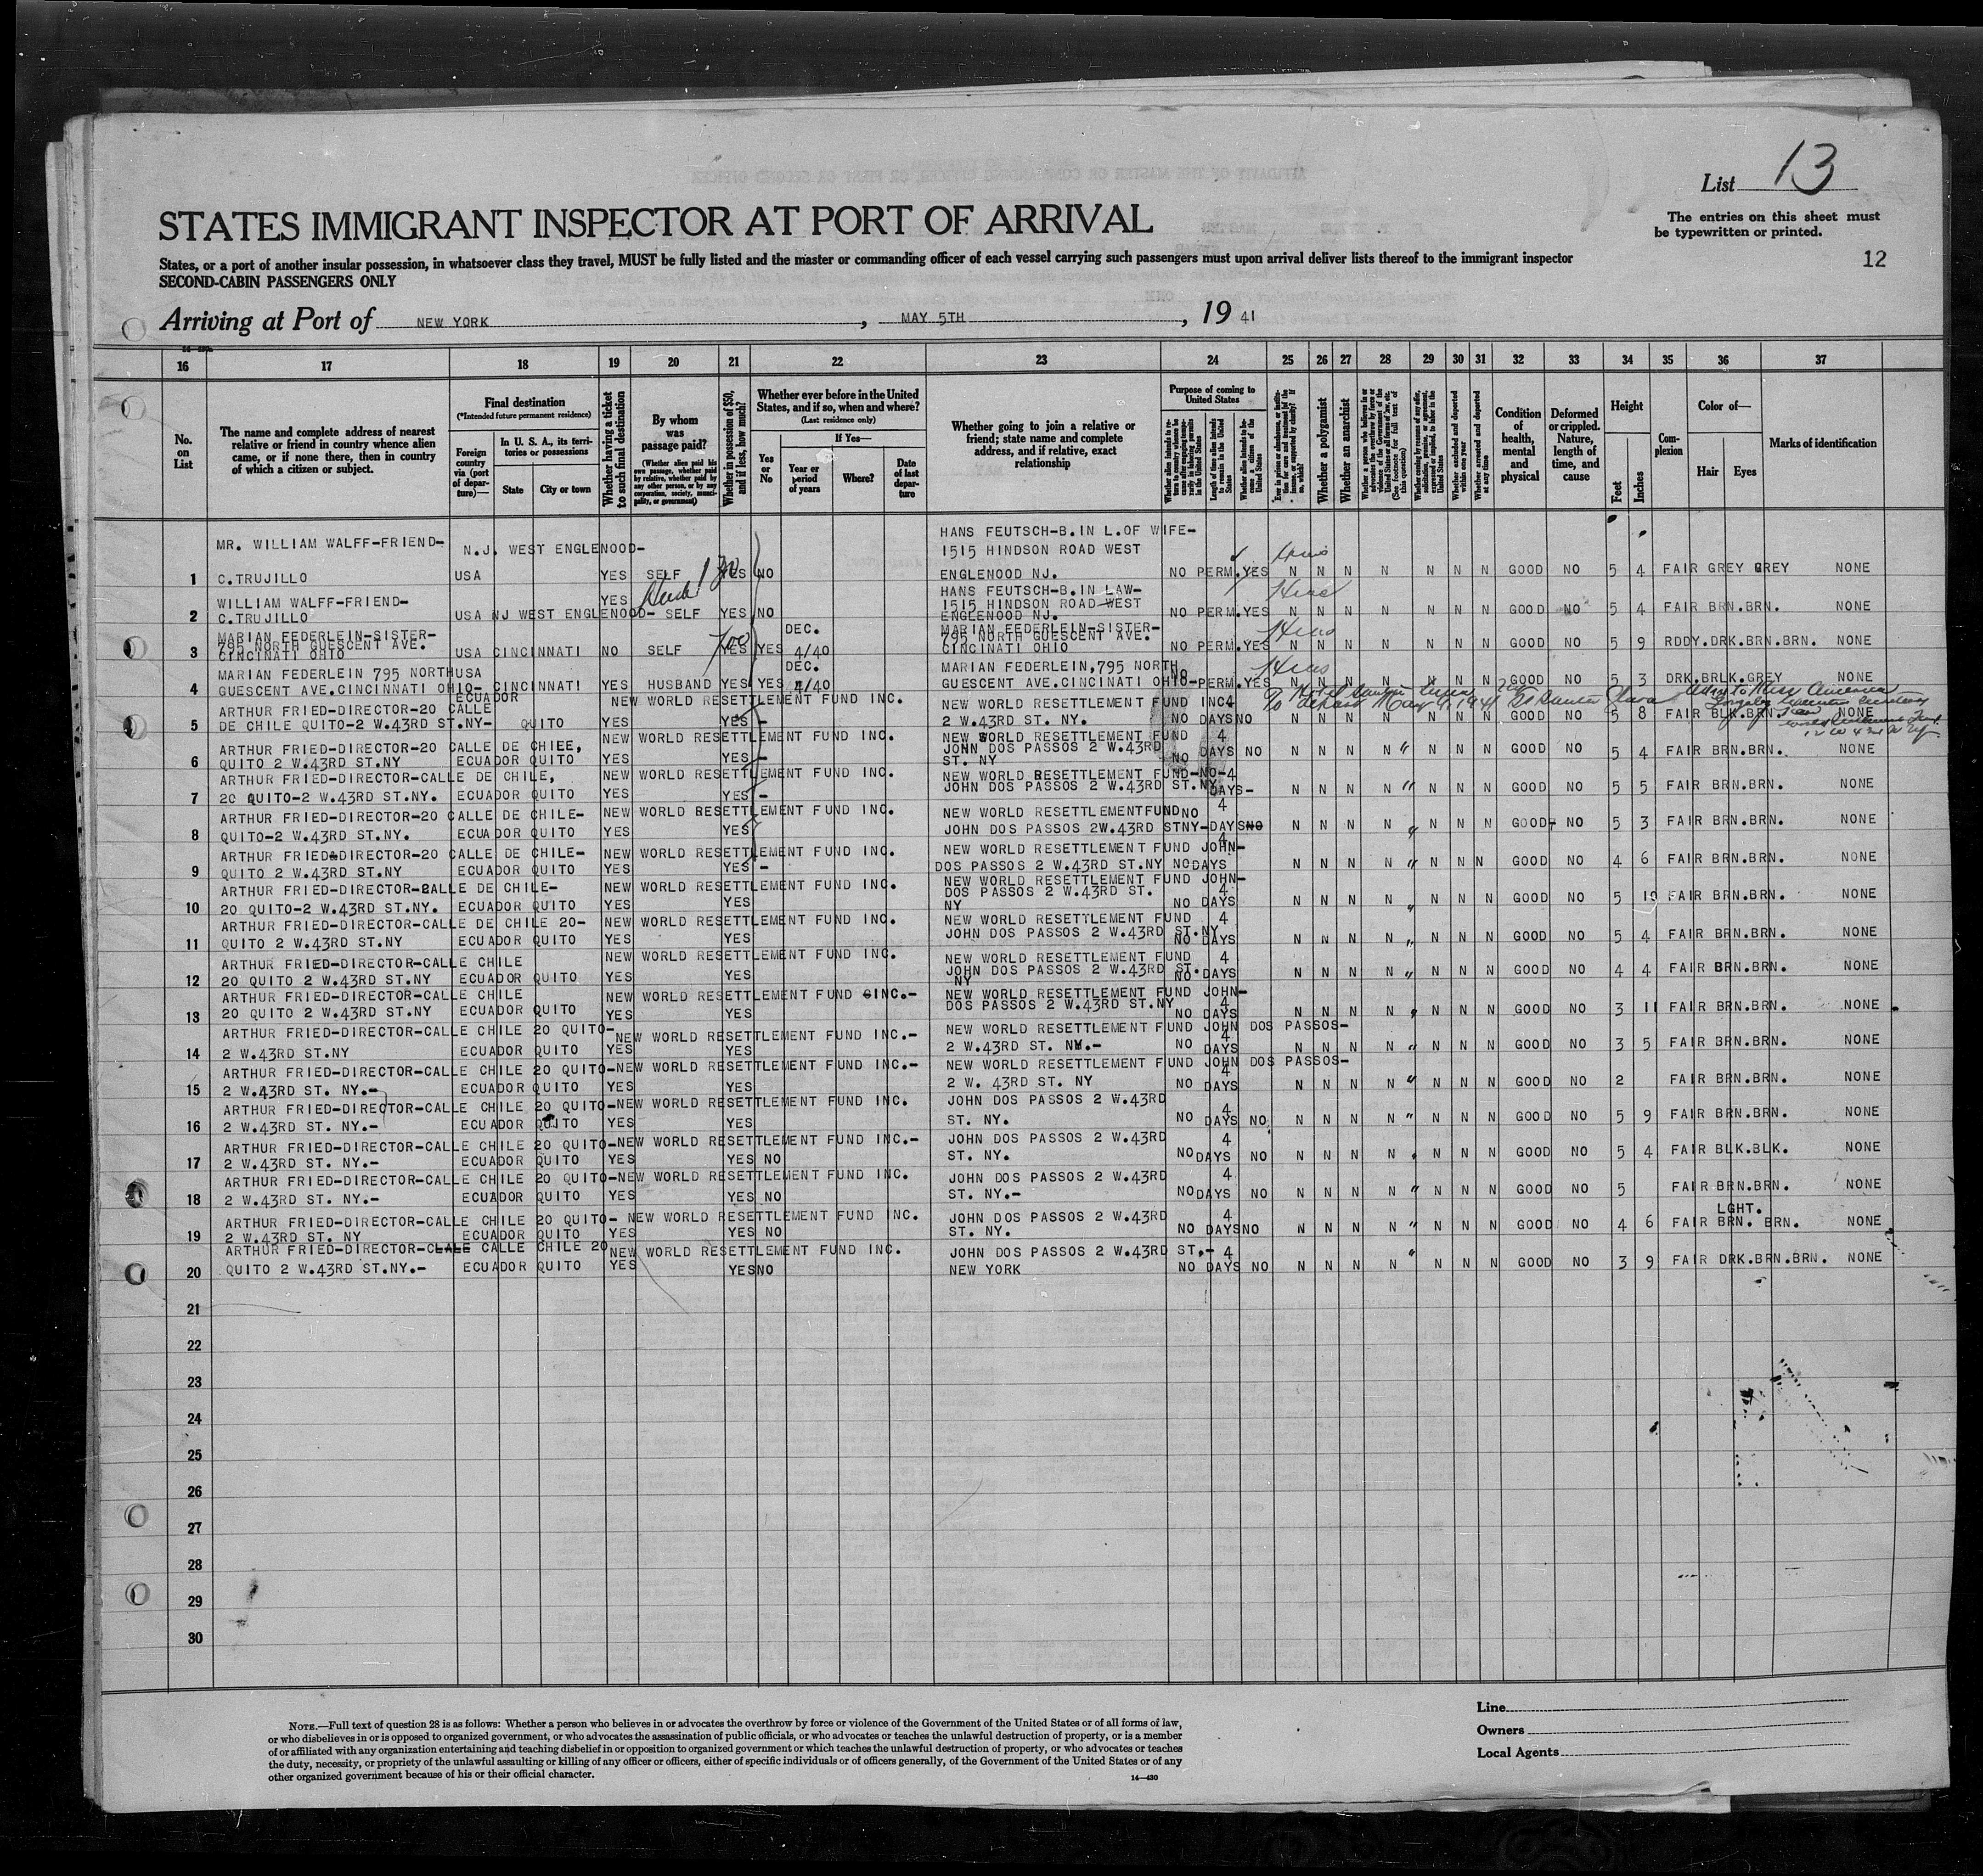 List 13
STATES IMMIGRANT INSPECTOR AT PORT OF ARRIVAL
The entries on this sheet must
be typewritten or printed.
States, or a port of another insular possession, in whatsoever class they travel, MUST be fully listed and the master or commanding officer of each vessel carrying such passengers must upon arrival deliver lists thereof to the immigrant inspector
12
SECOND-CABIN PASSENGERS ONLY
Arriving at Port of NEW YORK, MAY 5TH, 19 41
16 17 18 19 20 21 22 23 24 25 26 27 28 29 30 31 32 33 34 35 36 37
No. on List
The name and complete address of nearest relative or friend in country whence alien came, or if none there, then in country of which a citizen or subject.
Final destination
(*Intended future permanent residence)
Foreign country via (port of departure)—
In U. S. A., its territories or possessions
State
City or town
Whether having a ticket to such final destination
By whom was passage paid?
(Whether alien paid his own passage, whether paid by relative, whether paid by any other person, or by any corporation, society, municipality, or government)
Whether in possession of $50, and if less, how much?
Whether ever before in the United States, and if so, when and where?
(Last residence only)
Yes or No
If Yes—
Year or period of years
Where?
Date of last departure
Whether going to join a relative or friend; state name and complete address, and if relative, exact relationship
Purpose of coming to United States
Length of time alien intends to remain in the United States
Whether alien intends to become a citizen of the United States
Whether a polygamist
Whether an anarchist
Whether excluded and deported within one year
Whether arrested and deported at any time
Condition of health, mental and physical
Deformed or crippled. Nature, length of time, and cause
Height
Feet
Inches
Complexion
Color of—
Hair
Eyes
Marks of identification
MR. WILLIAM WALFF-FRIEND- N.J. WEST ENGLENOOD- HANS FEUTSCH-B.IN L.OF WIFE-
1515 HINDSON ROAD WEST
1 C.TRUJILLO USA YES SELF YES NO ENGLENOOD NJ. NO PERM.YES N N N N N N N GOOD NO 5 4 FAIR GREY GREY NONE
WILLIAM WALFF-FRIEND- YES HANS FEUTSCH-B.IN LAW-
1515 HINDSON ROAD WEST
2 C.TRUJILLO USA NJ WEST ENGLENOOD- SELF YES NO ENGLENOOD NJ. NO PERM.YES N N N N N N N GOOD NO 5 4 FAIR BRN.BRN. NONE
MARIAN FEDERLEIN-SISTER- DEC. MARIAN FEDERLEIN-SISTER-
795 NORTH GUESCENT AVE. 700 795 NORTH GUESCENT AVE.
3 CINCINATI OHIO USA CINCINNATI NO SELF YES YES 4/40 CINCINATI OHIO NO PERM.YES N N N N N N N GOOD NO 5 9 RDDY.DRK.BRN.BRN. NONE
MARIAN FEDERLEIN 795 NORTH USA DEC. MARIAN FEDERLEIN,795 NORTH
4 GUESCENT AVE.CINCINNATI OHIO- CINCINNATI YES HUSBAND YES YES 4/40 GUESCENT AVE.CINCINNATI OHIO- NO PERM.YES N N N N N N N GOOD NO 5 3 DRK.BRLK.GREY NONE
ARTHUR FRIED-DIRECTOR-20 CALLE ECUADOR NEW WORLD RESETTLEMENT FUND INC. NEW WORLD RESETTLEMENT FUND INC4
5 DE CHILE QUITO-2 W.43RD ST.NY- QUITO YES YES - 2 W.43RD ST. NY. NO DAYS NO N N N N N N N GOOD NO 5 8 FAIR BLK.BRN. NONE
ARTHUR FRIED-DIRECTOR-20 CALLE DE CHIEE, NEW WORLD RESETTLEMENT FUND INC. NEW WORLD RESETTLEMENT FUND 4
JOHN DOS PASSOS 2 W.43RD
6 QUITO 2 W.43RD ST.NY ECUADOR QUITO YES YES - ST. NY NO DAYS NO N N N N " N N N GOOD NO 5 4 FAIR BRN.BRN. NONE
ARTHUR FRIED-DIRECTOR-CALLE DE CHILE, NEW WORLD RESETTLEMENT FUND INC. NEW WORLD RESETTLEMENT FUND-NO-4
7 20 QUITO-2 W.43RD ST.NY. ECUADOR QUITO YES YES - JOHN DOS PASSOS 2 W.43RD ST.NY DAYS- N N N N " N N N GOOD NO 5 5 FAIR BRN.BRN. NONE
ARTHUR FRIED-DIRECTOR-20 CALLE DE CHILE- NEW WORLD RESETTLEMENT FUND INC. NEW WORLD RESETTLEMENTFUND NO 4
8 QUITO-2 W.43RD ST.NY. ECUADOR QUITO YES YES JOHN DOS PASSOS 2W.43RD STNY-DAYSNO N N N N " N N N GOOD NO 5 3 FAIR BRN.BRN. NONE
ARTHUR FRIED&DIRECTOR-20 CALLE DE CHILE- NEW WORLD RESETTLEMENT FUND INC. NEW WORLD RESETTLEMENT FUND JOHN- 4
9 QUITO 2 W.43RD ST.NY ECUADOR QUITO YES YES - DOS PASSOS 2 W.43RD ST.NY NO DAYS N N N N " N N N GOOD NO 4 6 FAIR BRN.BRN. NONE
ARTHUR FRIED-DIRECTOR-CALLE DE CHILE- NEW WORLD RESETTLEMENT FUND INC. NEW WORLD RESETTLEMENT FUND JOHN-
DOS PASSOS 2 W.43RD ST. 4
10 20 QUITO-2 W.43RD ST.NY. ECUADOR QUITO YES YES NY NO DAYS N N N N " N N N GOOD NO 5 FAIR BRN.BRN. NONE
ARTHUR FRIED-DIRECTOR-CALLE DE CHILE 20- NEW WORLD RESETTLEMENT FUND INC. NEW WORLD RESETTLEMENT FUND 4
11 QUITO 2 W.43RD ST.NY ECUADOR QUITO YES YES JOHN DOS PASSOS 2 W.43RD ST.NY NO DAYS N N N N " N N N GOOD NO 5 4 FAIR BRN.BRN. NONE
ARTHUR FRIED-DIRECTOR-CALLE CHILE NEW WORLD RESETTLEMENT FUND INC. NEW WORLD RESETTLEMENT FUND 4
12 20 QUITO 2 W.43RD ST.NY ECUADOR QUITO YES YES JOHN DOS PASSOS 2 W.43RD ST. NY NO DAYS N N N N " N N N GOOD NO 4 4 FAIR BRN.BRN. NONE
ARTHUR FRIED-DIRECTOR-CALLE CHILE NEW WORLD RESETTLEMENT FUND INC.- NEW WORLD RESETTLEMENT FUND JOHN-
13 20 QUITO 2 W.43RD ST.NY ECUADOR QUITO YES YES DOS PASSOS 2 W.43RD ST.NY 4 NO DAYS N N N N " N N N GOOD NO 3 11 FAIR BRN.BRN. NONE
ARTHUR FRIED-DIRECTOR-CALLE CHILE 20 QUITO- NEW WORLD RESETTLEMENT FUND INC.- NEW WORLD RESETTLEMENT FUND JOHN DOS PASSOS-
14 2 W.43RD ST.NY ECUADOR QUITO YES YES 2 W.43RD ST. NY.- NO 4 DAYS N N N N " N N N GOOD NO 3 5 FAIR BRN.BRN. NONE
ARTHUR FRIED-DIRECTOR-CALLE CHILE 20 QUITO-NEW WORLD RESETTLEMENT FUND INC.- NEW WORLD RESETTLEMENT FUND JOHN DOS PASSOS-
15 2 W.43RD ST. NY.- ECUADOR QUITO YES YES 2 W. 43RD ST. NY NO 4 DAYS N N N N " N N N GOOD NO 2 FAIR BRN.BRN. NONE
ARTHUR FRIED-DIRECTOR-CALLE CHILE 20 QUITO-NEW WORLD RESETTLEMENT FUND INC. JOHN DOS PASSOS 2 W.43RD
16 2 W.43RD ST. NY.- ECUADOR QUITO YES YES ST. NY. NO 4 DAYS NO N N N N " N N N GOOD NO 5 9 FAIR BRN.BRN. NONE
ARTHUR FRIED-DIRECTOR-CALLE CHILE 20 QUITO-NEW WORLD RESETTLEMENT FUND INC.- JOHN DOS PASSOS 2 W.43RD 4
17 2 W.43RD ST. NY.- ECUADOR QUITO YES YES NO ST. NY. NO DAYS NO N N N N " N N N GOOD NO 5 4 FAIR BLK.BLK. NONE
ARTHUR FRIED-DIRECTOR-CALLE CHILE 20 QUITO-NEW WORLD RESETTLEMENT FUND INC. JOHN DOS PASSOS 2 W.43RD 4
18 2 W.43RD ST. NY.- ECUADOR QUITO YES YES NO ST. NY.- NO DAYS NO N N N N " N N N GOOD NO 5 FAIR BRN.BRN. NONE
ARTHUR FRIED-DIRECTOR-CALLE CHILE 20 QUITO- NEW WORLD RESETTLEMENT FUND INC. JOHN DOS PASSOS 2 W.43RD 4 LGHT.
19 2 W.43RD ST. NY ECUADOR QUITO YES YES NO ST. NY. NO DAYS NO N N N N " N N N GOOD NO 4 6 FAIR BRN. BRN. NONE
ARTHUR FRIED-DIRECTOR-CLALE CALLE CHILE 20 NEW WORLD RESETTLEMENT FUND INC. JOHN DOS PASSOS 2 W.43RD ST.- 4
20 QUITO 2 W.43RD ST.NY.- ECUADOR QUITO YES YES NO NEW YORK NO DAYS NO N N N N " N N N GOOD NO 3 9 FAIR DRK.BRN.BRN. NONE
21
22
23
24
25
26
27
28
29
30
NOTE.—Full text of question 28 is as follows: Whether a person who believes in or advocates the overthrow by force or violence of the Government of the United States or of all forms of law,
or who disbelieves in or is opposed to organized government, or who advocates the assassination of public officials, or who advocates or teaches the unlawful destruction of property, or is a member
of or affiliated with any organization entertaining and teaching disbelief in or opposition to organized government or which teaches the unlawful destruction of property, or who advocates or teaches
the duty, necessity, or propriety of the unlawful assaulting or killing of any officer or officers, either of specific individuals or of officers generally, of the Government of the United States or of any
other organized government because of his or their official character.
14—430
Line
Owners
Local Agents